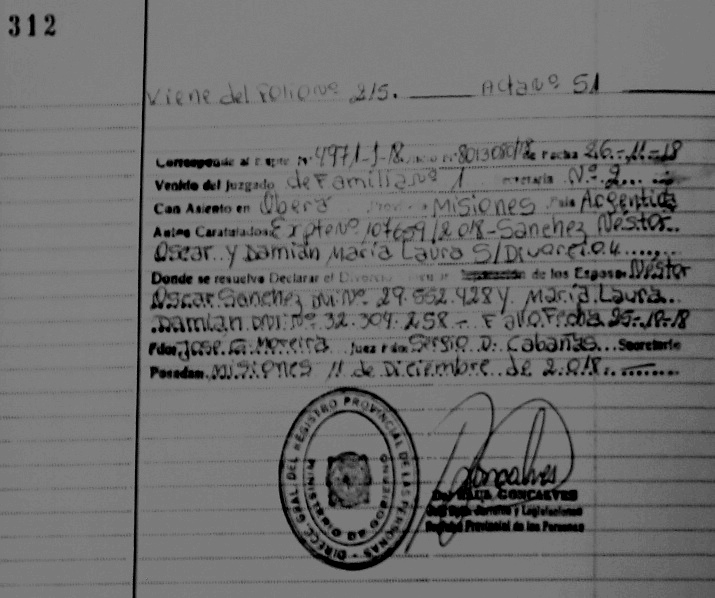 312
Viene del Folio Nº 215. Acta Nº 51
Corresponde al Expte Nº 4971-J-18. Nº 8013080/18 de Fecha 26.-11-18
Venido del Juzgado de Familia Nº 1 Secretaria Nº 2
Con Asiento en Obera Provincia Misiones Pais Argentina
Autos Caratulados Expte Nº 107659/2018-Sanchez Nestor
Oscar y Damián María Laura S/Divorcio
Donde se resuelve Declarar el Divorcio de los Esposos Nestor
Oscar Sanchez DNI Nº 29.552.428 y María Laura
Damian DNI Nº 32.304.258 - Fallo Fecha 25-10-18
Fdo: José G. Moreira Juez Fdo: Sergio D. Cabañas Secretario
Posadas Misiones 11 de Diciembre de 2.018.
DIRECC. GRAL. DEL REGISTRO PROVINCIAL DE LAS PERSONAS
MINISTERIO DE GOBIERNO
Goncalves
RAUL GONCALVES
Jurídica y Legislaciones
Registro Provincial de las Personas